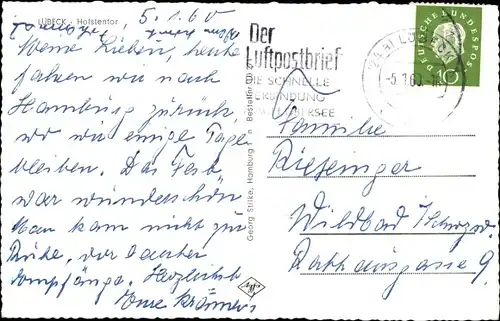 LÜBECK - Holstentor
5.1.60
Meine Lieben, heute
fahren wir nach
Hamburg zurück,
wo wir einige Tage
bleiben. Das Fest
war wunderschön
Man kam nicht zur
Ruhe, vor lauter
Empfänge. Herzlichst
Eure
Georg Stilke, Hamburg
Bestell
Der
Luftpostbrief
DIE SCHNELLE
VERBINDUNG
ÜBERSEE
LÜBECK
-5.1.60
DEUTSCHE BUNDESPOST
10
Familie
Riesinger
Wildbad Schwzw.
Rathausgasse 9.
Agfa